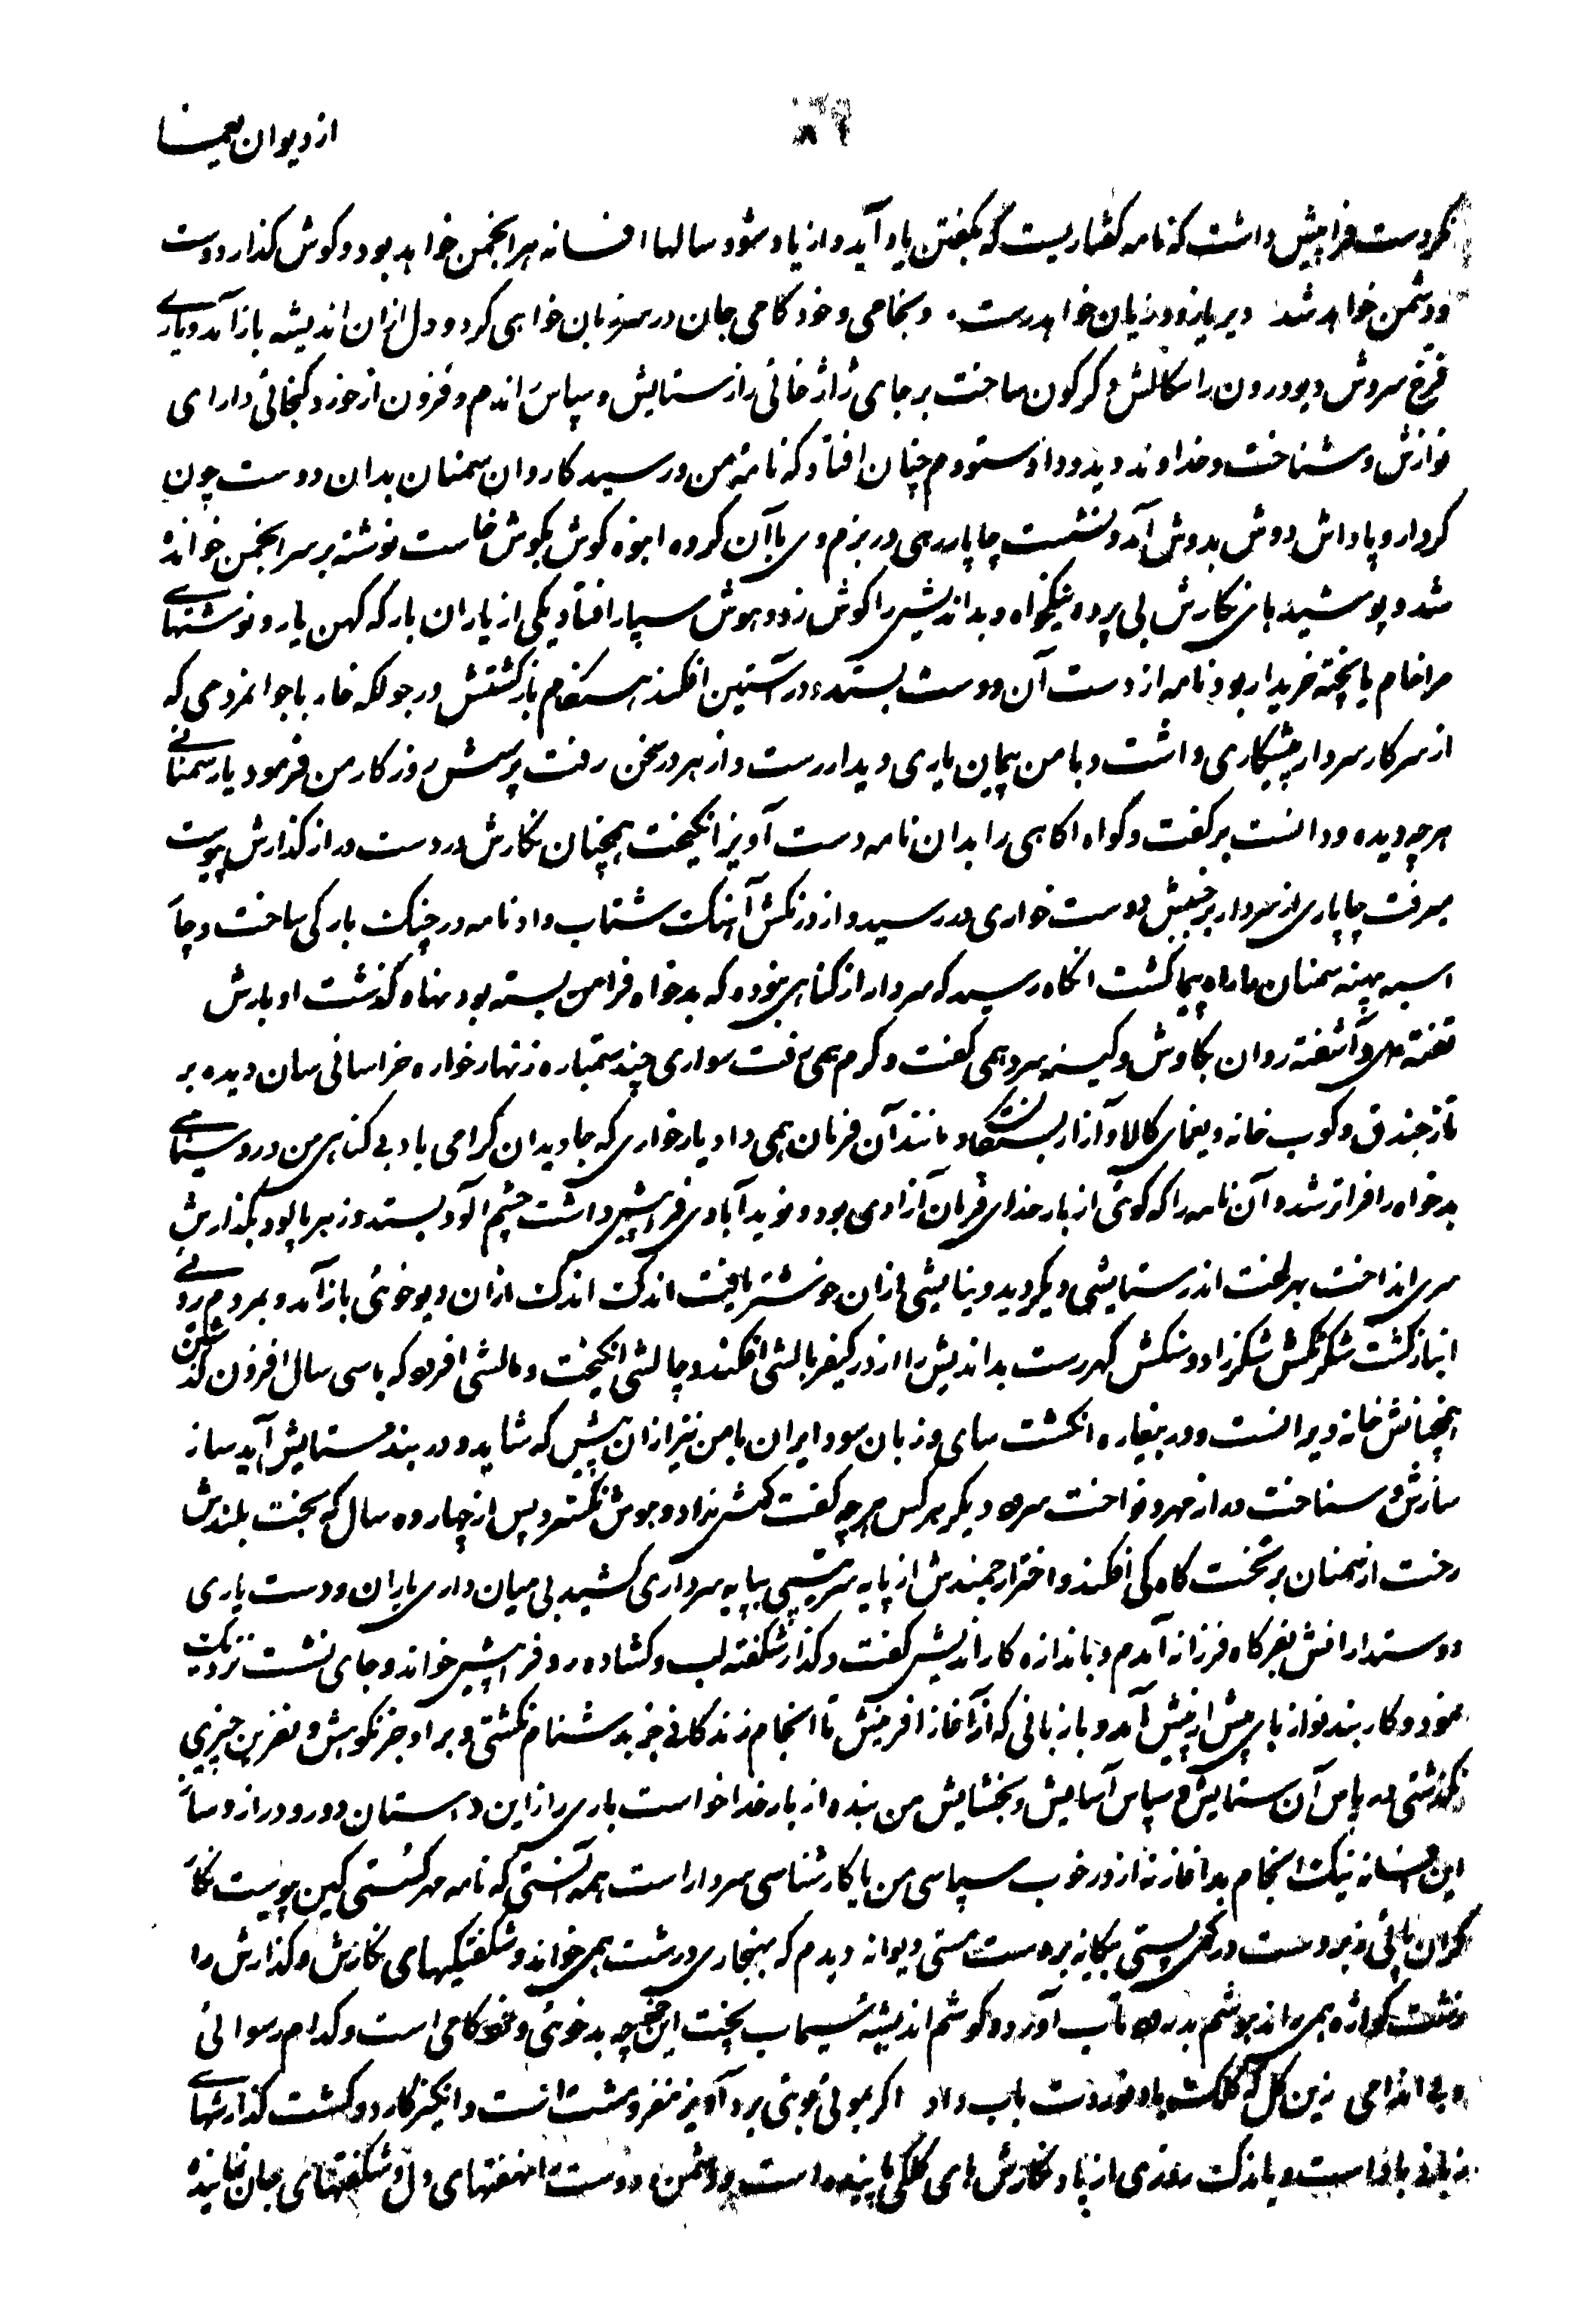 از دیوان یغما
۸۴
دست فراپیش داشت که نامه گفتاریست که بگفتن یاد آید و از یاد شود سالها افسانه هر انجمن خواهد بود و گوش گذار دوست
و دشمن خواهد شد دیر یا زود زیان خواهد رست. و بخامی و خودکامی جان در سر زبان خواهی کرد و دل از آن اندیشه بازآمد و یاری
فرخ سروش دیو درون را سگالش دگرگون ساخت بر جای ژاژخائی راز ستایش و سپاس اندم و فزون از خورد گنجائی دارای
نوازش و شناخت و خداوند دید و داد ستودم چنان افتاد که نامه من در رسید کاروان سمنان بدان دوست چون
کردار و پاداش دوش بدوش آمد و نشست چاپار رهی در بزم وی با آن گروه انبوه گوش بگوش خاست نوشته بر سر انجمن خوانده
شد و پوشیدهای نگارش بی پرده نیکخواه و بداندیش را گوش زد و هوش سپار افتاد یکی از یاران بارکه کهن یار و نوشتهای
مرا خام یا پخته خریدار بود نامه از دست آن دوست بستد و در آستین افکند هنگام بازگشتش در جولکه خار با جوانمردی که
از سرکار سردار پیشکاری داشت و با من پیمان یاری و دیدار رست و از هر در سخن رفت پرسش روزگار من فرمود یار سمنانی
هر چه دیده و دانست برگفت و گواه آگاهی را بدان نامه دست آویز انگیخت همچنان نگارش در دست و راز گذارش پیوست
میرفت چاپاری از سردار بر جنبش دوست خواری در رسید و از در نکش آهنگ شتاب داد نامه در چنگ بارگی ساخت و چا
اسبه پهنه سمنان را راه پیما گشت انگاه رسید که سردار از گناهی نبوده که بدخواه فرا من بسته بود و گذشت او بارش
تفته دل و آشفته روان بکاوش و کینه سرد همی گفت و گرم همی رفت سواری چند ستمباره زنهارخواره خراسانی سان دیده بر
تاز جندق و کوب خانه و یغمای کالا و آزار بستگان و مانند آن فرمان همی داد یار خواری که جاویدان گرامی باد بی گناهی من در و سیتمای
بدخواه را فراتر شد و آن نامه را که گوئی از بار خدای فرمان آزادی بود و نوید آبادی فراپیش داشت خشم آلود بستد و زهر پالود بگذارش
سری انداخت بهر لخت اندر ستایشی دیگر دید و نیایشی از آن خوشتر یافت اندک اندک از آن دیوخوئی بازآمد و بمردم روئی
انباز گشت شگرنگش شکر زاد و سنگش گهر رست بداندیش را از در کیفر بالشی افکند و چالشی انگیخت و مالشی افزود که با سی سال افزون گذشتن
همچنانش خانه ویرانست و در بیغاره انگشت سای و زبان سود ایران با من نیز از آن پیش که شاید و در بند ستایش آید ساز
سازش و شناخت و راز مهر و نواخت سرود دیگر هر کس هر چه گفت گوش نداد و هوش نگسترد پس از چهارده سال که بخت بلندش
رخت از سمنان بر تخت گاه کی افکند و اختر ارجمندش از پایه سرتیپی بپایه سرداری کشید بی میان داری یاران و دست یاری
دوستدارانش بفرگاه فرزانه آمدم و باندازه کاراندیش گفت و گذار شکفته لب و گشاده رو فراپیش خواند و جای نشست نزدیک
نمود و کار بند نواز پای پیش از پیش آمد و با زبانی که از آغاز آفرینش تا انجام زندگانی جز بدشنام نگشتی و بر او جز نکوهش و نفرین چیزی
نگذشتی در پاس آن ستایش و سپاس آسایش و بخشایش من بنده از بار خدا خواست باری راز این داستان دور و دراز و سا
این افسانه نیک انجام بد آغاز نه از در خوب سپاسی من یا کارشناسی سردار است همه دانستی که نامه مهر گستی کین پیوست نگا
گران پائی زبردست در کف پستی بیگانه پرست مستی دیوانه دیدم که بهنجاری درشت همی خواند و شگفتیهای نگارش و گذارش را
زشت گواژه همی راند هوشم بدرود تاب آورد و گوشم اندیشه سیماب پخت این چه بدخوئی و خودکامی است و کدام رسوائی
و بی اندامی زین گل که کلکت باد نوروزت باب داد اگر بوئی نبوئی برد آویز مغز و مشت انست و انگیز کارد و گشت گذارشهای
زبانی باد است و باندک روزی از یاد نگارش های کلکی پاینده است و دشمن و دوست را نهفتهای دل و شگفتهای جان نماینده